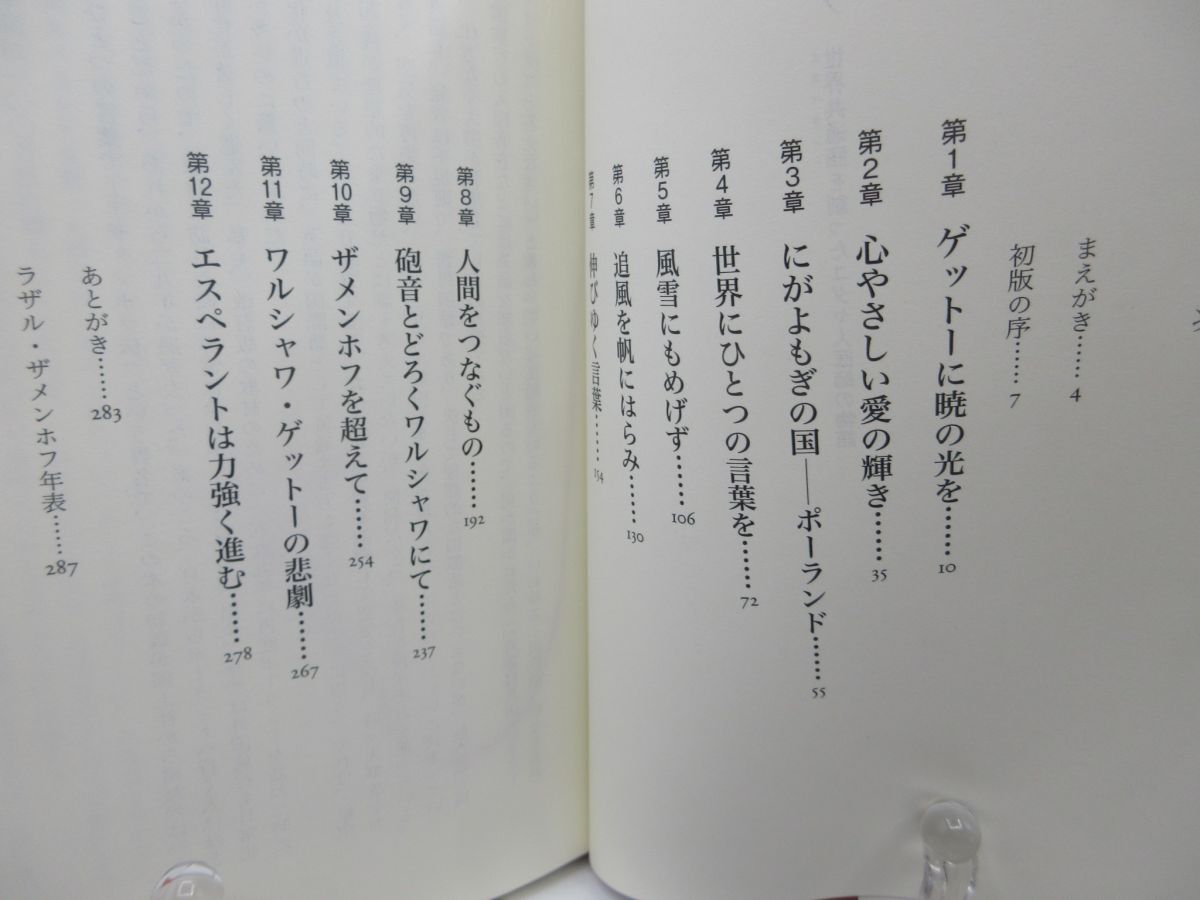 まえがき……4
初版の序……7
第1章 ゲットーに暁の光を……10
第2章 心やさしい愛の輝き……35
第3章 にがよもぎの国――ポーランド……55
第4章 世界にひとつの言葉を……72
第5章 風雪にもめげず……106
第6章 追風を帆にはらみ……130
第7章 伸びゆく言葉……154
第8章 人間をつなぐもの……192
第9章 砲音とどろくワルシャワにて……237
第10章 ザメンホフを超えて……254
第11章 ワルシャワ・ゲットーの悲劇……267
第12章 エスペラントは力強く進む……278
あとがき……283
ラザル・ザメンホフ年表……287